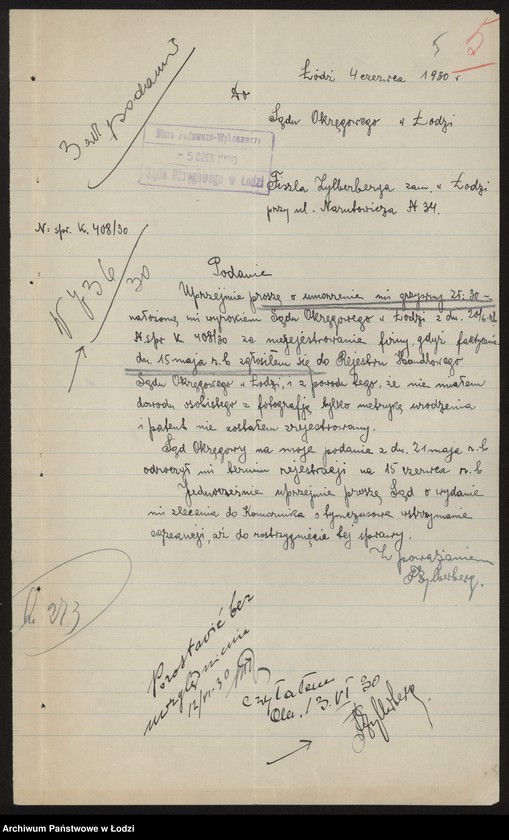 5
5
Łódź 4 czerwca 1930 r
Do
Sądu Okręgowego w Łodzi
3 podanie
Biuro Podawczo-Wykonawcze
- 5 CZER 1930
Sądu Okręgowego w Łodzi
Fiszla Zylberberga zam. w Łodzi
przy ul. Narutowicza № 34.
N: spr. K. 408/30
N 436
30
Podanie
Uprzejmie proszę o umorzenie mi grzywny Zł: 30 –
nałożoną mi wyrokiem Sądu Okręgowego w Łodzi z dn.
N. spr K. 408/30 za niezejestrowanie firmy, gdyż faktycznie
dn. 15 maja r. b zgłosiłem się do Rejestru Handlowego
Sądu Okręgowego w Łodzi, i z powodu tego, że nie miałem
dowodu osobistego z fotografją tylko metrykę urodzenia
i patent nie zostałem zrejestrowany.
Sąd Okręgowy na moje podanie z dn. 21 maja r. b
odroczył mi termin rejestracji na 15 czerwca r. b
Jednocześnie uprzejmie proszę Sąd o wydanie
mi zlecenia do Komornika o tymczasowe wstrzymanie
egzekucji, aż do rostrzygnięcie tej sprawy.
Z poważaniem
FZylberberg.
273
Pozostawić bez
uwzględnienia
12/VI 30
Czytałem
Dn. 13. VI 30
FZylberberg.
Archiwum Państwowe w Łodzi